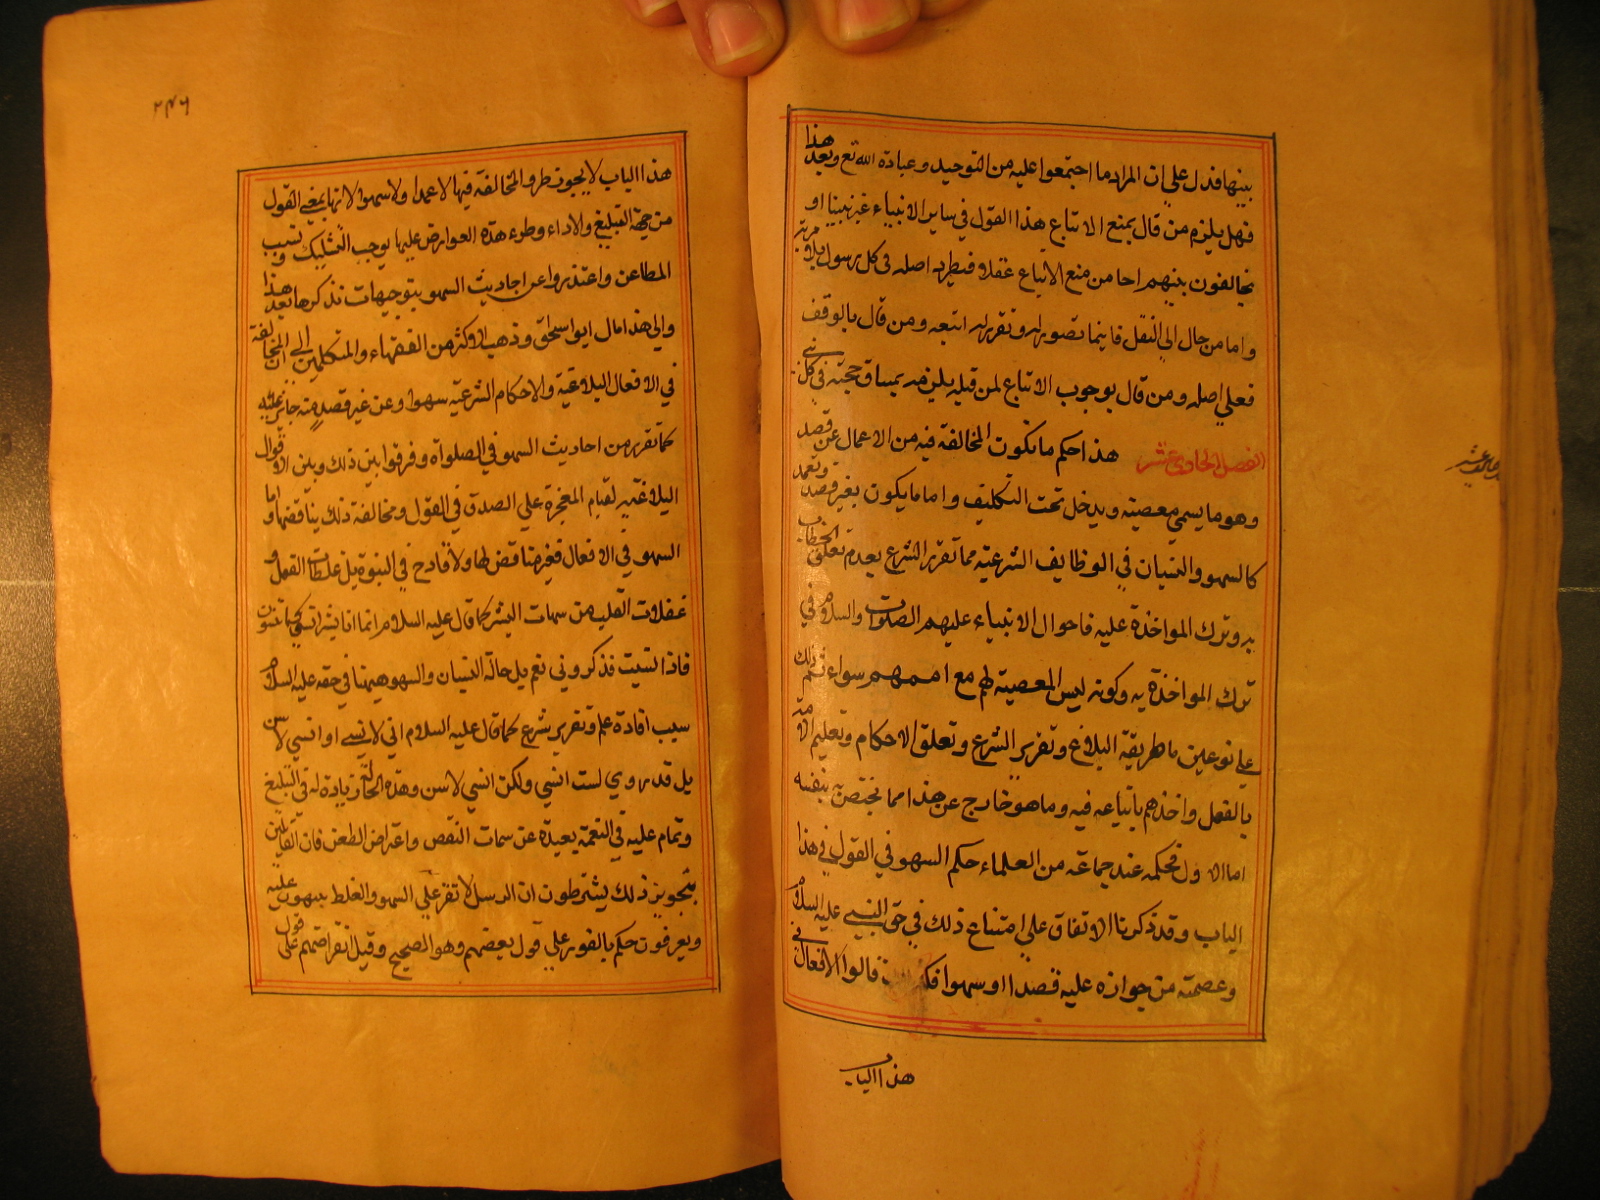 بينها فدل علي ان المراد ما اجتمعوا عليه من التوحيد وعبادة الله تع وبعد هذا
فهل يلزم من قال بمنع الاتباع هذا القول في ساير الانبياء غير نبينا او
يخالفون بينهم اما من منع الاتباع عقلا فيطرد اصله في كل رسول بلا مرية
واما من مال الي النقل فاينما تصور له وتقرر له اتبعه ومن قال بالوقف
فعلي اصله ومن قال بوجوب الاتباع لمن قبله يلزمه بمساق حجته في كل نبي
الفصل الحادي عشر هذا حكم ما تكون المخالفة فيه من الاعمال عن قصد
وهو ما يسمي معصية ويدخل تحت التكليف واما ما يكون بغير قصد وتعمد
كالسهو والنسيان في الوظايف الشرعية مما تقرر الشرع بعدم تعلق الخطاب
به وترك المواخذة عليه فاحوال الانبياء عليهم الصلوة والسلام في
ترك المواخذة به وكونه ليس بمعصية لهم مع اممهم سواء ثم ذلك
علي نوعين ما طريقه البلاغ وتقرير الشرع وتعلق الاحكام وتعليم الامة
بالفعل واخذهم باتباعه فيه وما هو خارج عن هذا مما يختص به بنفسه
اما الاول فحكمه عند جماعة من العلماء حكم السهو في القول في هذا
الباب وقد ذكرنا الاتفاق علي امتناع ذلك في حق النبي عليه السلام
وعصمته من جوازه عليه قصدا او سهوا قالوا الافعال في
هذا الباب
هذا الباب لا يجوز طرو المخالفة فيها لا عمدا ولا سهوا لانها بمعني القول
من جهة التبليغ والاداء وطروء هذه العوارض عليها يوجب التشكيك ونسب
المطاعن واعتذروا عن احاديث السهو بتوجيهات نذكرها بعد هذا
والي هذا مال ابو اسحاق وذهب الاكثر من الفقهاء والمتكلمين الي ان المخالفة
في الافعال البلاغية والاحكام الشرعية سهوا وعن غير قصد منه جائز عليه
كما تقرر من احاديث السهو في الصلواة وفرقوا بين ذلك وبين الاقوال
البلاغية لقيام المعجزة علي الصدق في القول ومخالفة ذلك يناقضها واما
السهو في الافعال فغير مناقض لها ولا قادح في النبوة بل غلطات الفعل و
غفلات القلب من سمات البشر كما قال عليه السلام انما انا بشر انسي كما تنسون
فاذا نسيت فذكروني نعم بل حالة النسيان والسهو هيهنا في حقه عليه السلام
سبب افادة علم وتقرير شرع كما قال عليه السلام اني لانسي او انسي لاسن
بل قد روي لست انسي ولكن انسي لاسن وهذه الحالة زيادة له في التبليغ
وتمام عليه في النعمة بعيدة عن سمات النقص واعراض الطعن فان القائلين
بتجويز ذلك يشترطون ان الرسل لا تقر علي السهو والغلط بل ينبهون عليه
ويعرفون حكمه بالفور علي قول بعضهم وهو الصحيح وقيل انقراضهم علي قول